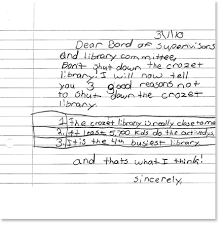 3/1/10
Dear Bord of Supervisors
and library committee,
Don't shut down the crozet
library! I will now tell
you 3 good reasons not
to shut down the crozet
library.
1. The crozet library is really close to me
2. At least 5,700 kids do the activedys
3. It is the 4th busiest library
and thats what I think!
sincerely,